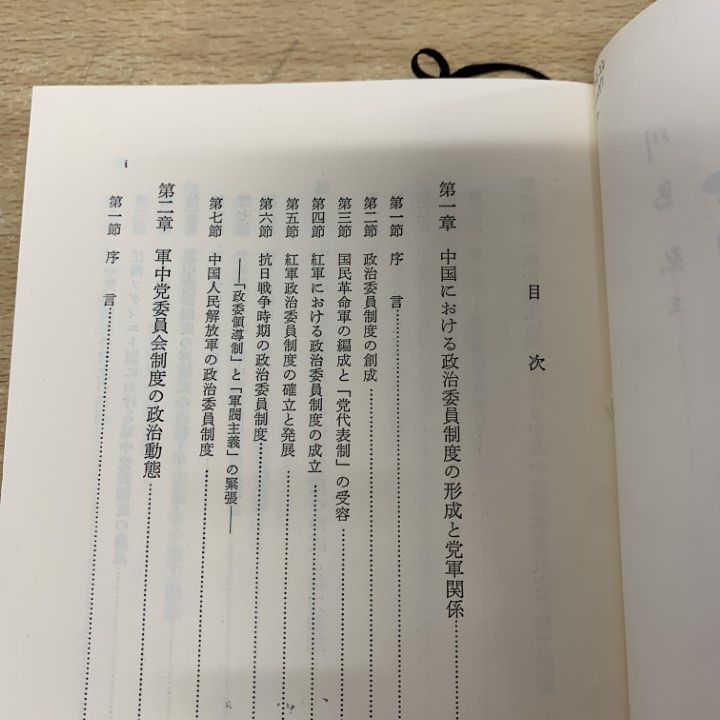 目 次
第一章 中国における政治委員制度の形成と党軍関係
第一節 序 言
第二節 政治委員制度の創成
第三節 国民革命軍の編成と「党代表制」の受容
第四節 紅軍における政治委員制度の成立
第五節 紅軍政治委員制度の確立と発展
第六節 抗日戦争時期の政治委員制度
――「政委領導制」と「軍閥主義」の緊張――
第七節 中国人民解放軍の政治委員制度
第二章 軍中党委員会制度の政治動態
第一節 序 言
i